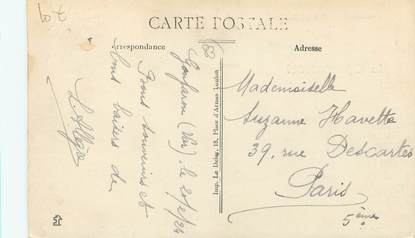 CARTE POSTALE
Correspondance
Adresse
83
Gonfaron (Var), le 20/2/24
Bons souvenirs et
bons baisers de
Imp. Le Deley, 18, Place d'Armes Toulon
Mademoiselle
Suzanne Havette
39, rue Descartes
Paris
5ème